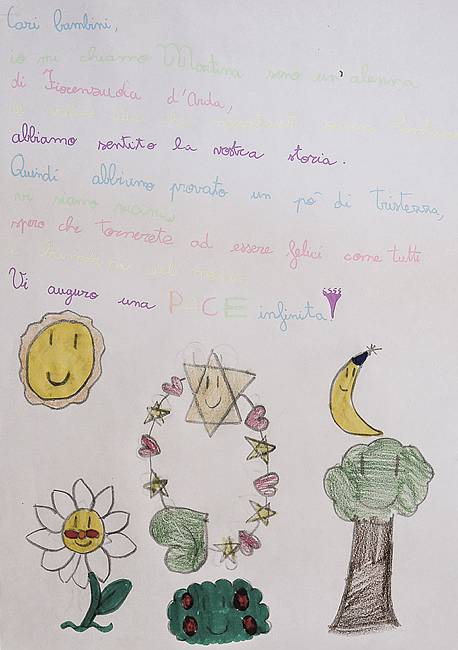 Cari bambini,
io mi chiamo Martina sono un'alunna
di Fiorenzuola d'Arda,
abbiamo sentito la vostra storia.
Quindi abbiamo provato un pò di tristezza,
vi siamo vicini,
spero che tornerete ad essere felici come tutti
i bambini del mondo.
Vi auguro una PACE infinita!